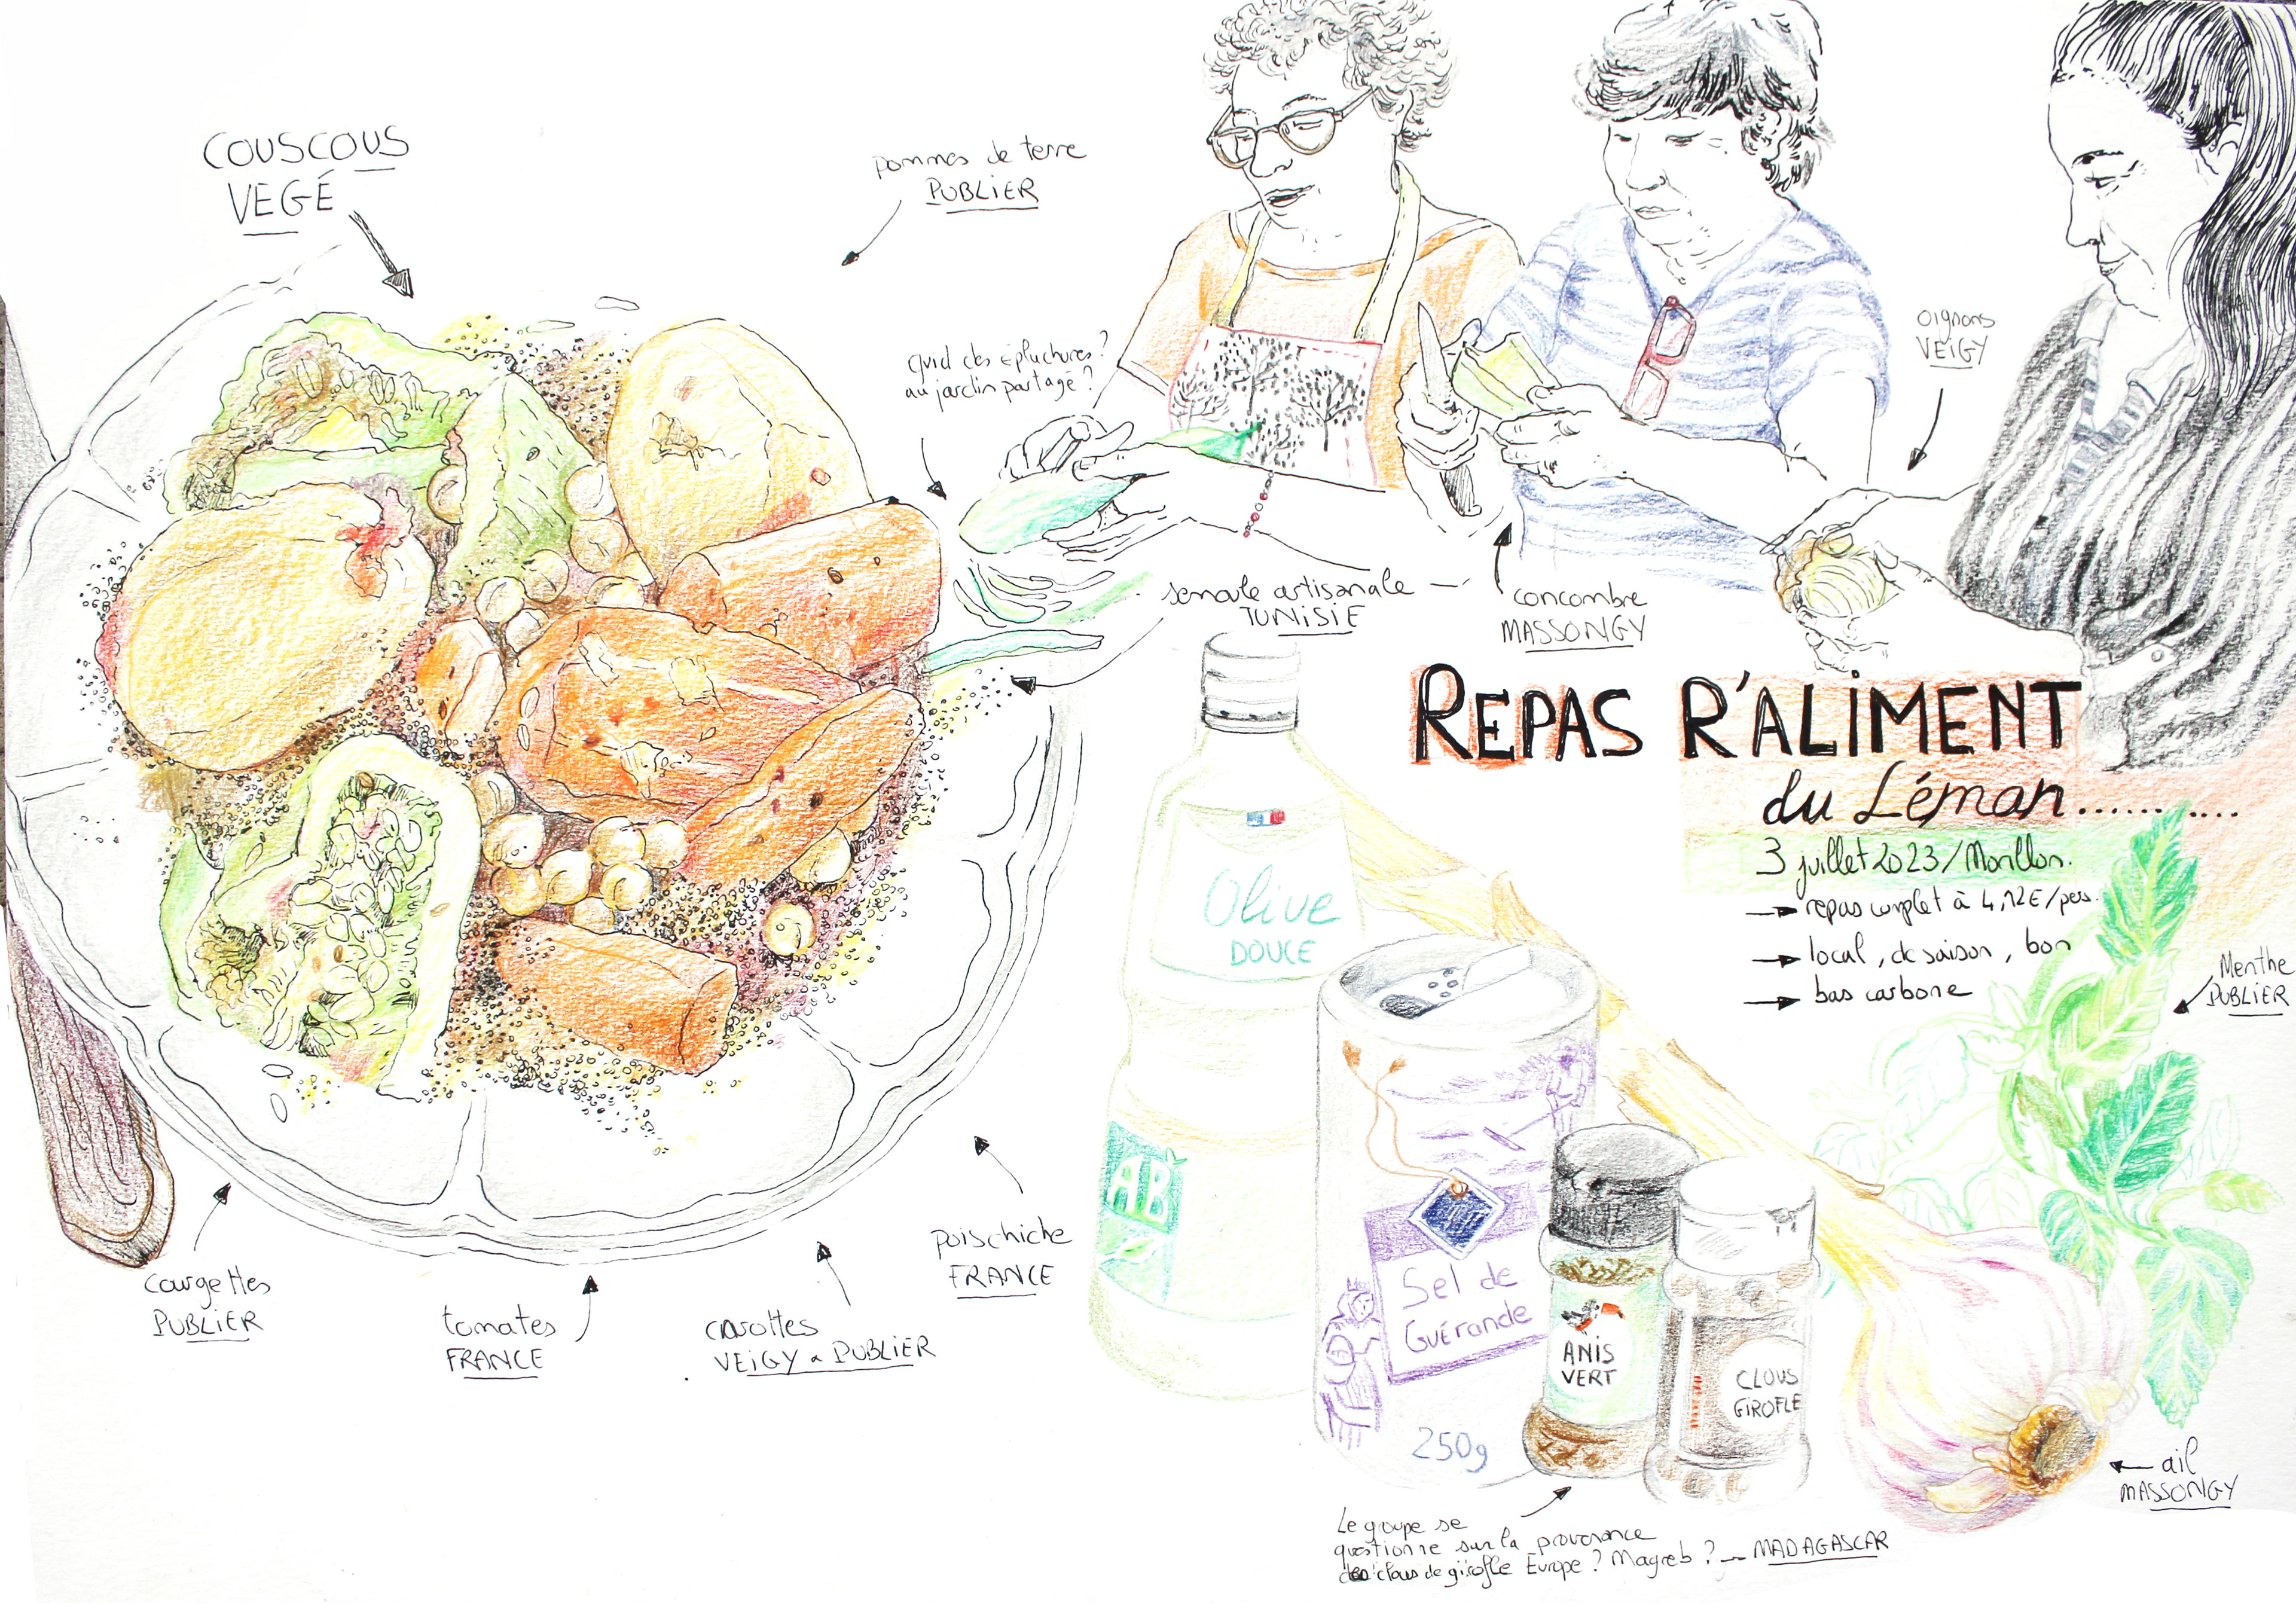 COUSCOUS
VEGÉ
pommes de terre
PUBLIER
quid des épluchures ?
au jardin partagé ?
semoule artisanale
TUNISIE
concombre
MASSONGY
oignons
VEIGY
REPAS R'ALIMENT
du Léman
3 juillet 2023 / Morillon.
→ repas complet à 4,12€/pers.
→ local, de saison, bon
→ bas carbone
Menthe
PUBLIER
Olive
DOUCE
AB
Sel de
Guérande
250g
ANIS
VERT
CLOUS
GIROFLE
ail
MASSONGY
courgettes
PUBLIER
tomates
FRANCE
carottes
VEIGY & PUBLIER
poischiche
FRANCE
Le groupe se
questionne sur la provenance
des clous de girofle Europe ? Magreb ? → MADAGASCAR